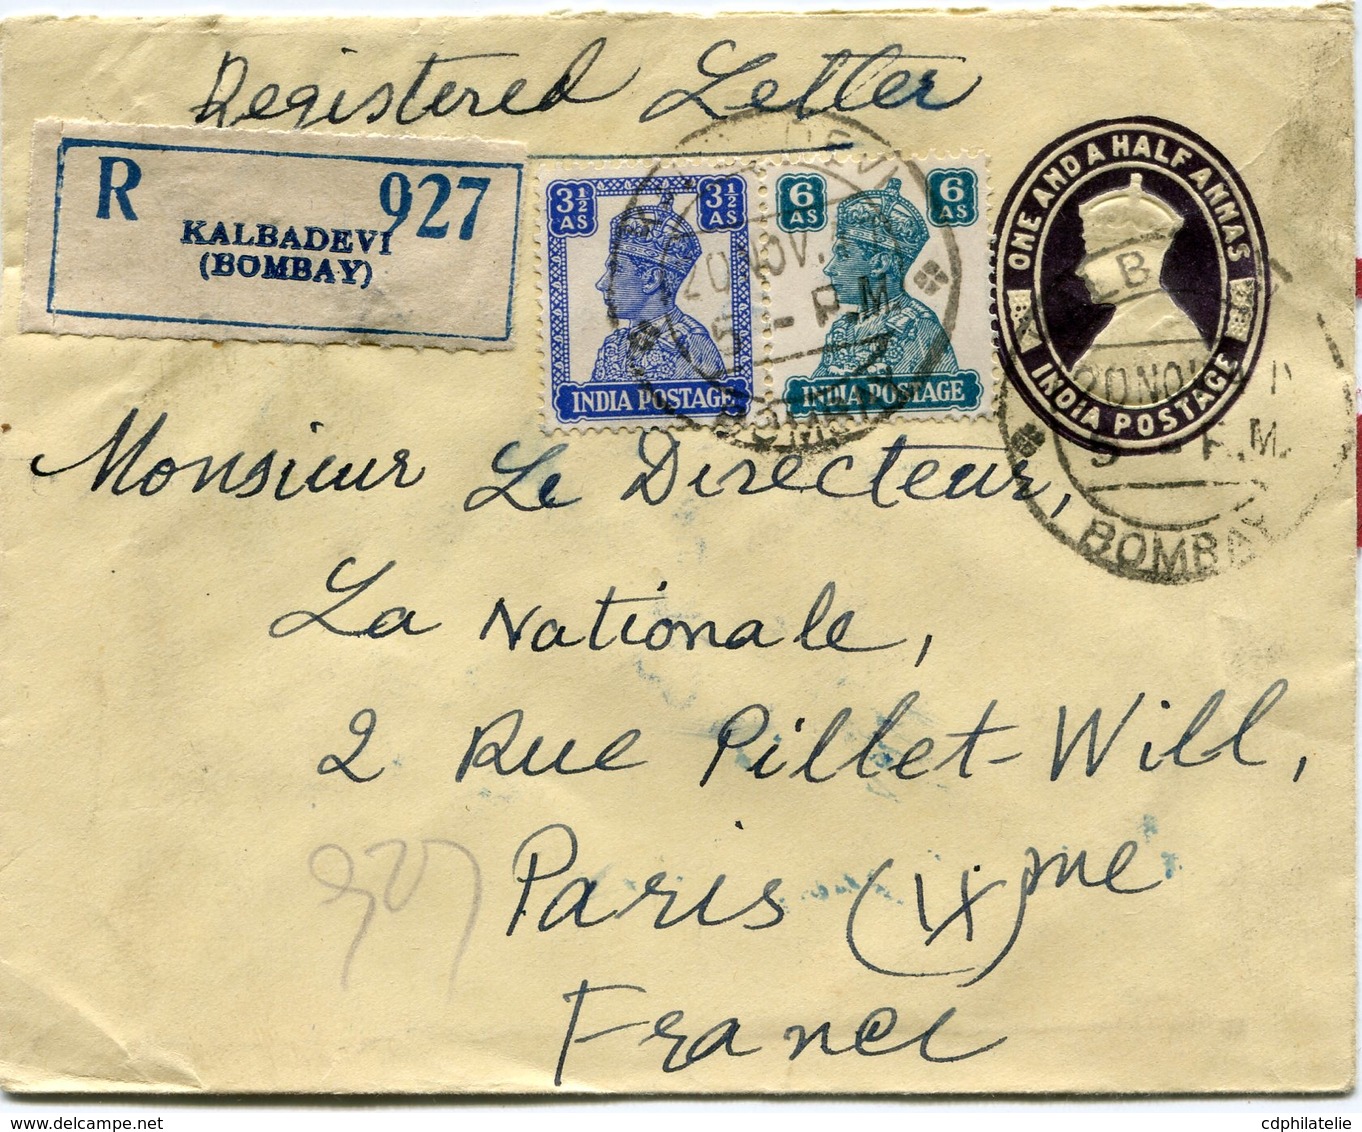 Registered Letter
R 927
KALBADEVI
(BOMBAY)
3½ AS 3½ AS
INDIA POSTAGE
6 AS 6 AS
INDIA POSTAGE
ONE AND A HALF ANNAS
INDIA POSTAGE
20 NOV.
5 - P.M.
BOMBAY
20 NOV
5 - P.M.
BOMBAY
Monsieur Le Directeur,
La Nationale,
2 Rue Pillet-Will,
Paris (IX)me
France
927
delcampe.net
cdphilatelie